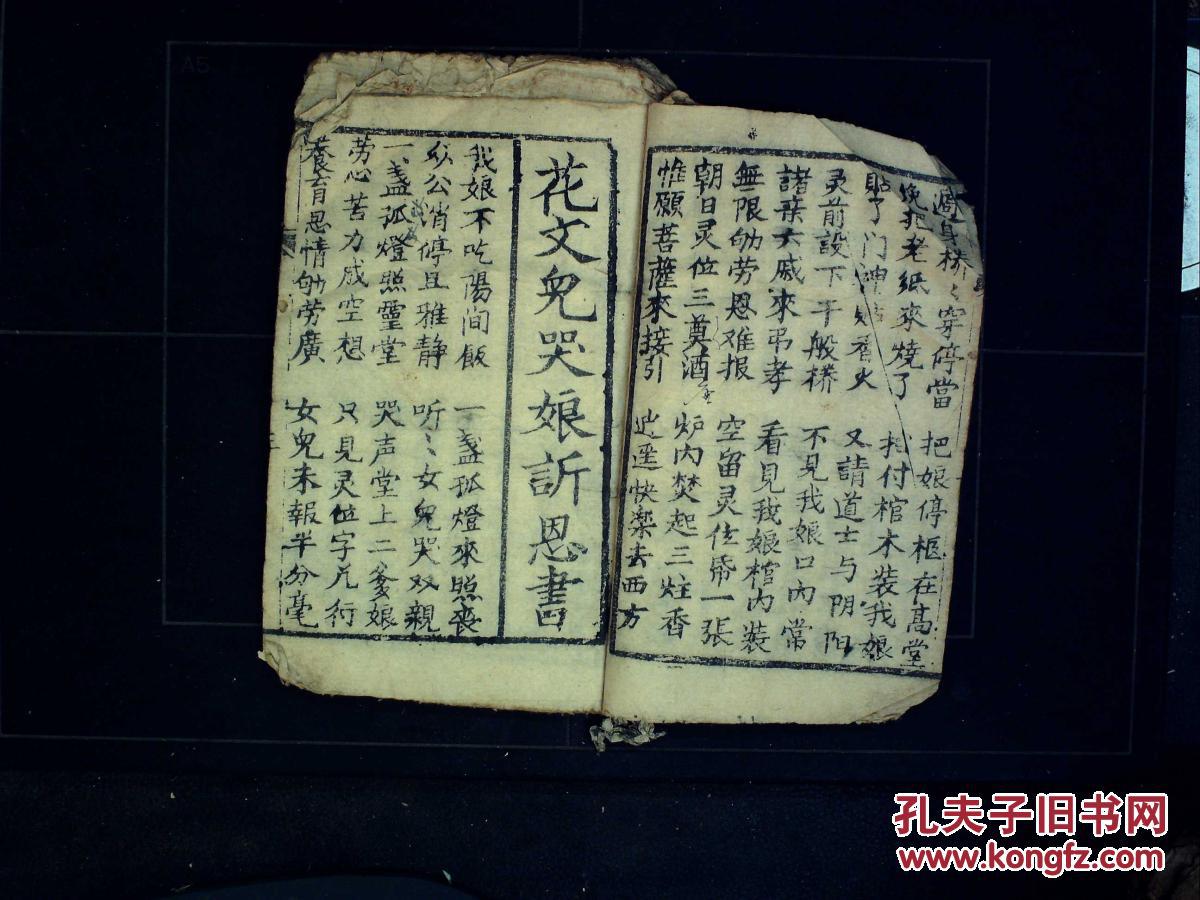 週身桥〻穿停當 把娘停柩在高堂
俛把老紙來燒了 付棺木装我娘
貼了门神 香火 又請道士与阴阳
灵前設下千般桥 不見我娘口内常
諸亲六戚來弔孝 看見我娘棺内裝
無限劬劳恩难报 空留灵位帋一張
朝日灵位三奠酒 炉内焚起三炷香
惟願菩薩來接引 逍遥快楽去西方
花文兒哭娘訴恩書
我娘不吃陽间飯 一盞孤燈來照丧
公消停且雅静 听〻女兒哭双親
一盞孤燈照靈堂 哭声堂上二爹娘
劳心苦力成空想 只見灵位字几行
養育恩情劬劳廣 女兒未報半分毫
A5
孔夫子旧书网
www.kongfz.com